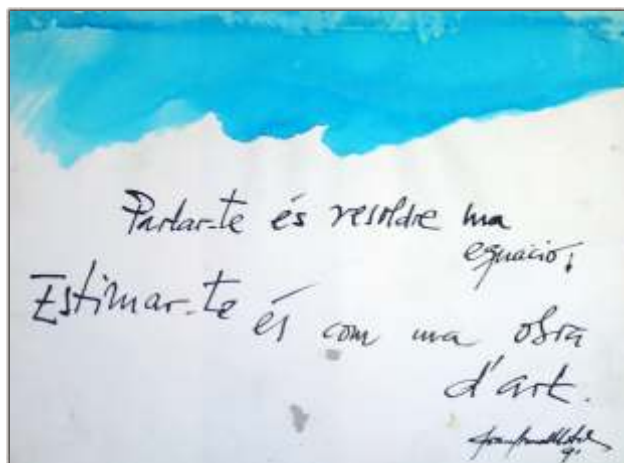 Parlar-te és resoldre una
equació;
Estimar-te és com una obra
d'art.